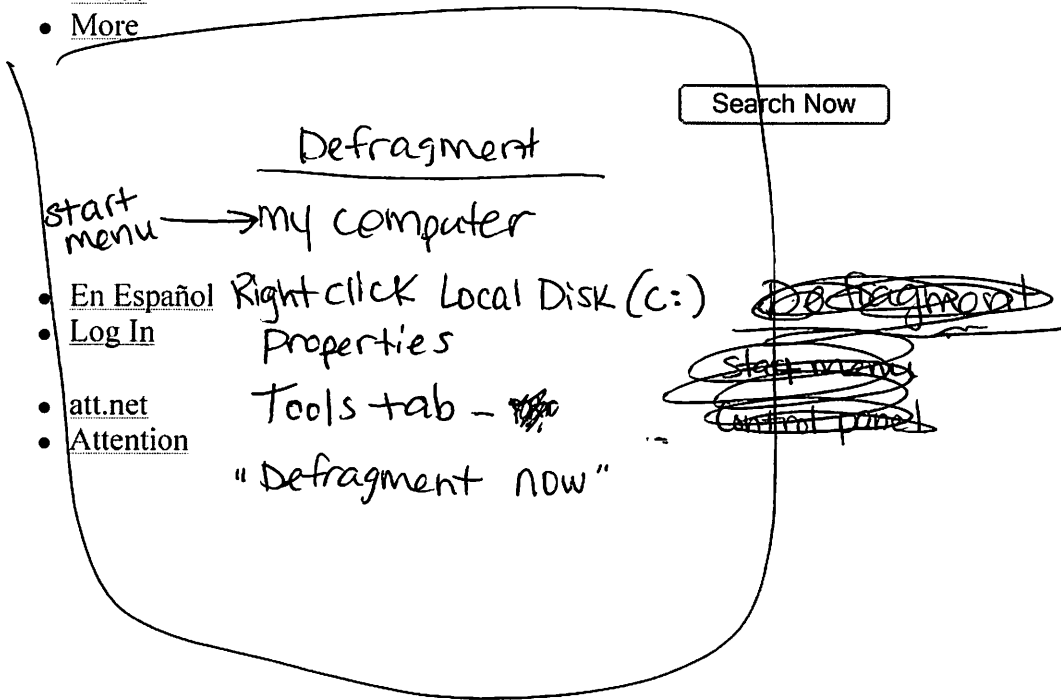 More
Search Now
Defragment
start menu → my computer
En Español Right click Local Disk (C:)
Log In Properties
att.net Tools tab -
Attention
"Defragment now"
Defragment
Start menu
Control panel